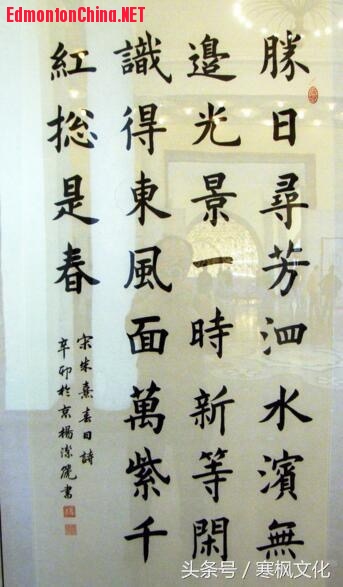 EdmontonChina.NET
勝日尋芳泗水濱無
邊光景一時新等閑
識得東風面萬紫千
紅捴是春
宋朱熹春日詩
辛卯於京楊潔書
头条号/寒枫文化